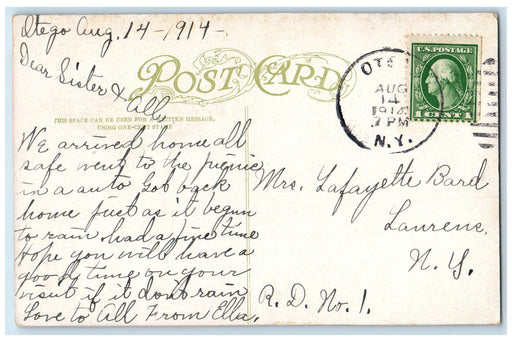 Otego Aug. 14-1914-
Dear Sister & All
POST CARD
THIS SPACE CAN BE USED FOR A WRITTEN MESSAGE,
USING ONE-CENT STAMP
We arrived home all
safe went to the picnic
in a auto got back
home just as it begun
to rain had a fine time
hope you will have a
good time on your
visit if it don't rain
Love to All From Ella.
U.S. POSTAGE
1 CENT 1
AUG
14
1914
7 PM
N.Y.
Mrs. Lafayette Bard
Laurens,
N.Y.
R.D. No. 1.